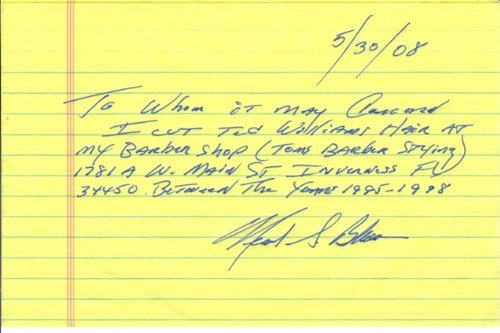 5/30/08
To Whom it may Concern
I cut Ted Williams Hair at
my Barber Shop (Toms Barber Styling)
1781 A W. Main St Inverness FL
34450. Between The Years 1995-1998